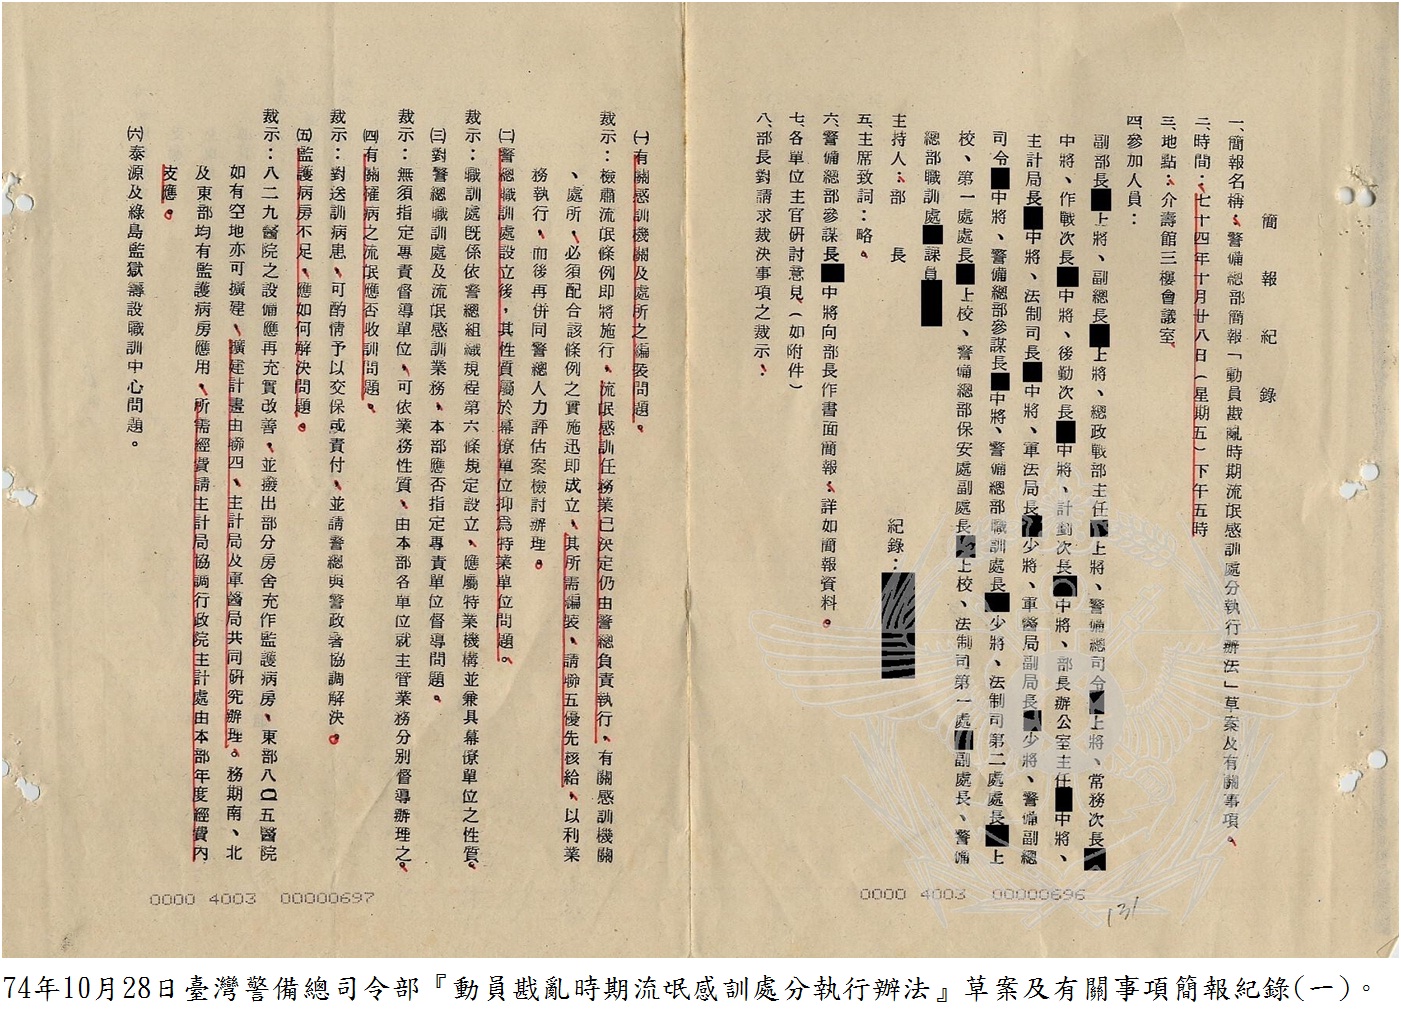 簡報紀錄
一、簡報名稱：警備總部簡報「動員戡亂時期流氓感訓處分執行辦法」草案及有關事項。
二、時間：七十四年十月廿八日（星期五）下午五時
三、地點：介壽館三樓會議室
四、參加人員：
副部長上將、副總長上將、總政戰部主任上將、警備總司令上將、常務次長
中將、作戰次長中將、後勤次長中將、計劃次長中將、部長辦公室主任中將、
主計局長中將、法制司長中將、軍法局長少將、軍醫局副局長少將、警備副總
司令中將、警備總部參謀長中將、警備總部職訓處長少將、法制司第二處處長上
校、第一處處長上校、警備總部保安處副處長上校、法制司第一處副處長、警備
總部職訓處課員
主持人：部長　紀錄：
五、主席致詞：略。
六、警備總部參謀長中將向部長作書面簡報：詳如簡報資料。
七、各單位主官研討意見（如附件）
八、部長對請求裁決事項之裁示：
0000 4003 00000696
131
㈠有關感訓機關及處所之編裝問題。
裁示：檢肅流氓條例即將施行、流氓感訓任務業已決定仍由警總負責執行、有關感訓機關
、處所、必須配合該條例之實施迅即成立、其所需編裝、請聯五優先核給、以利業
務執行、而後再併同警總人力評估案檢討辦理。
㈡警總職訓處設立後，其性質屬於幕僚單位抑為特業單位問題。
裁示：職訓處既係依警總組織規程第六條規定設立、應屬特業機構並兼具幕僚單位之性質。
㈢對警總職訓處及流氓感訓業務、本部應否指定專責單位督導問題。
裁示：無須指定專責督導單位、可依業務性質、由本部各單位就主管業務分別督導辦理之。
㈣有關罹病之流氓應否收訓問題。
裁示：對送訓病患、可酌情予以交保或責付、並請警總與警政署協調解決。
㈤監護病房不足、應如何解決問題。
裁示：八二九醫院之設備應再充實改善、並撥出部分房舍充作監護病房、東部八〇五醫院
如有空地亦可擴建、擴建計畫由聯四、主計局及軍醫局共同研究辦理。務期南、北
及東部均有監護病房應用、所需經費請主計局協調行政院主計處由本部年度經費內
支應。
㈥泰源及綠島監獄籌設職訓中心問題。
0000 4003 00000697
74年10月28日臺灣警備總司令部『動員戡亂時期流氓感訓處分執行辦法』草案及有關事項簡報紀錄(一)。